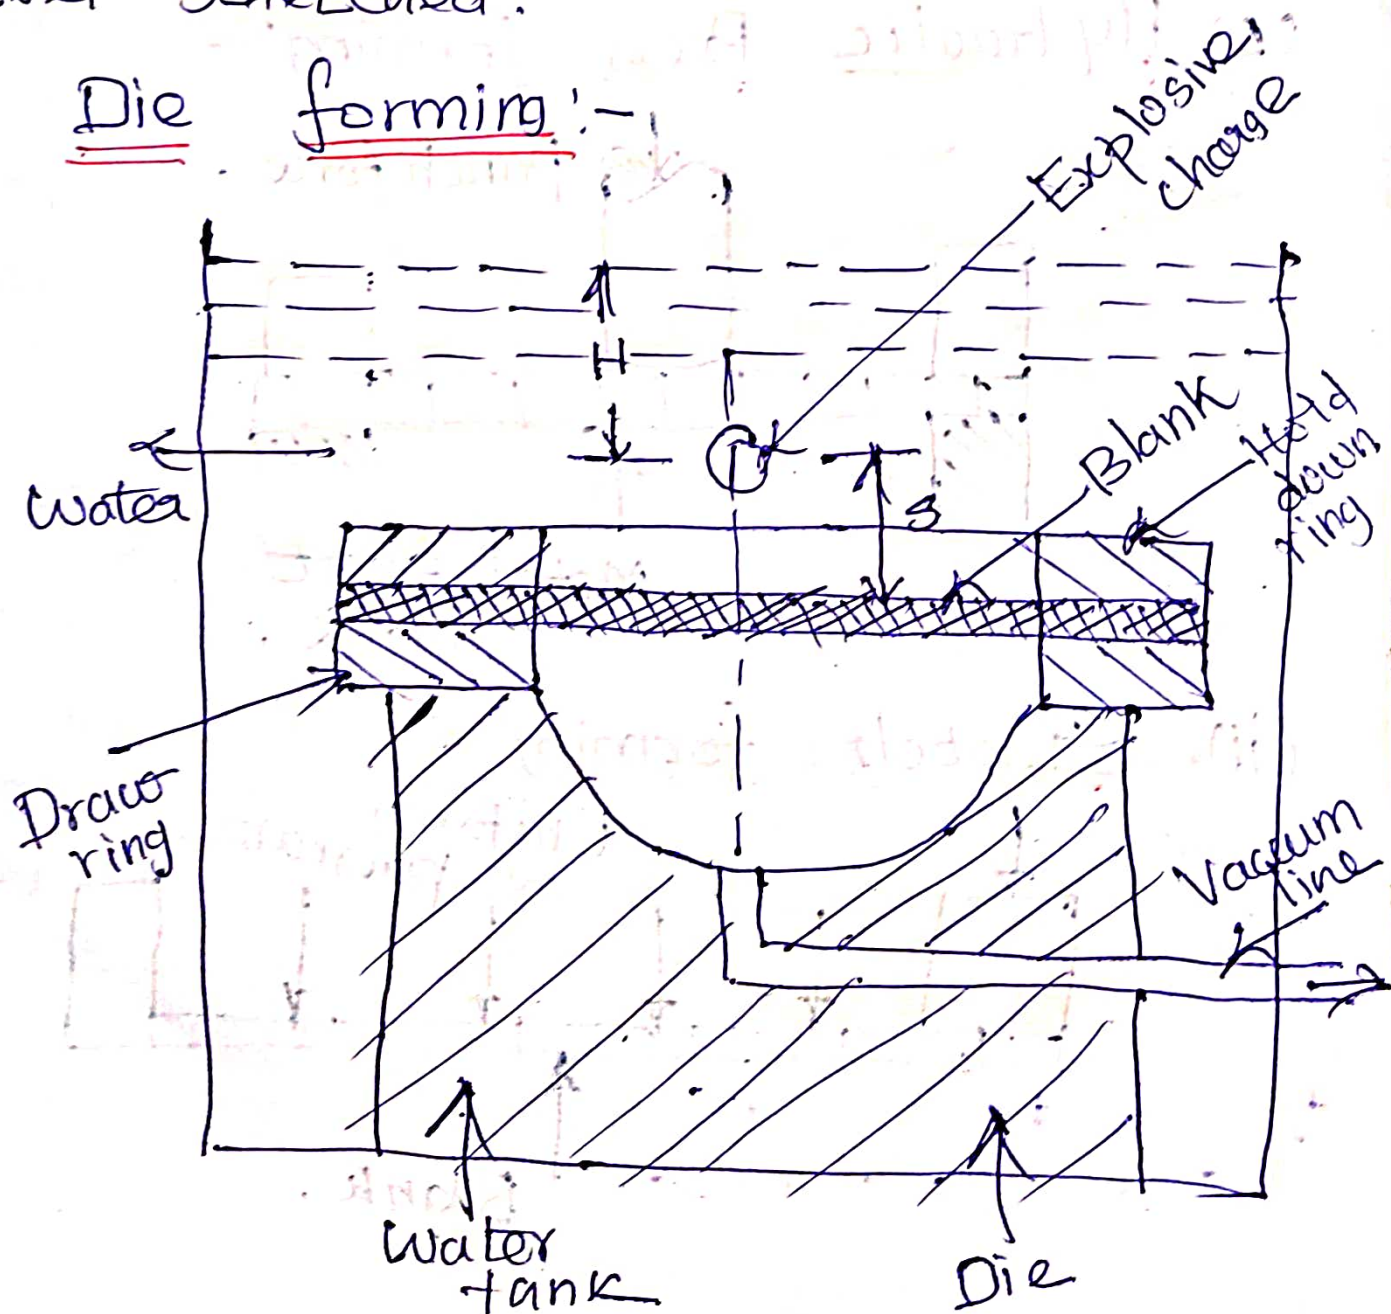 Die forming :-
Explosive
charge
H
Water
S
Blank
Hold
down
ring
Draw
ring
Vacuum
line
Water
tank
Die